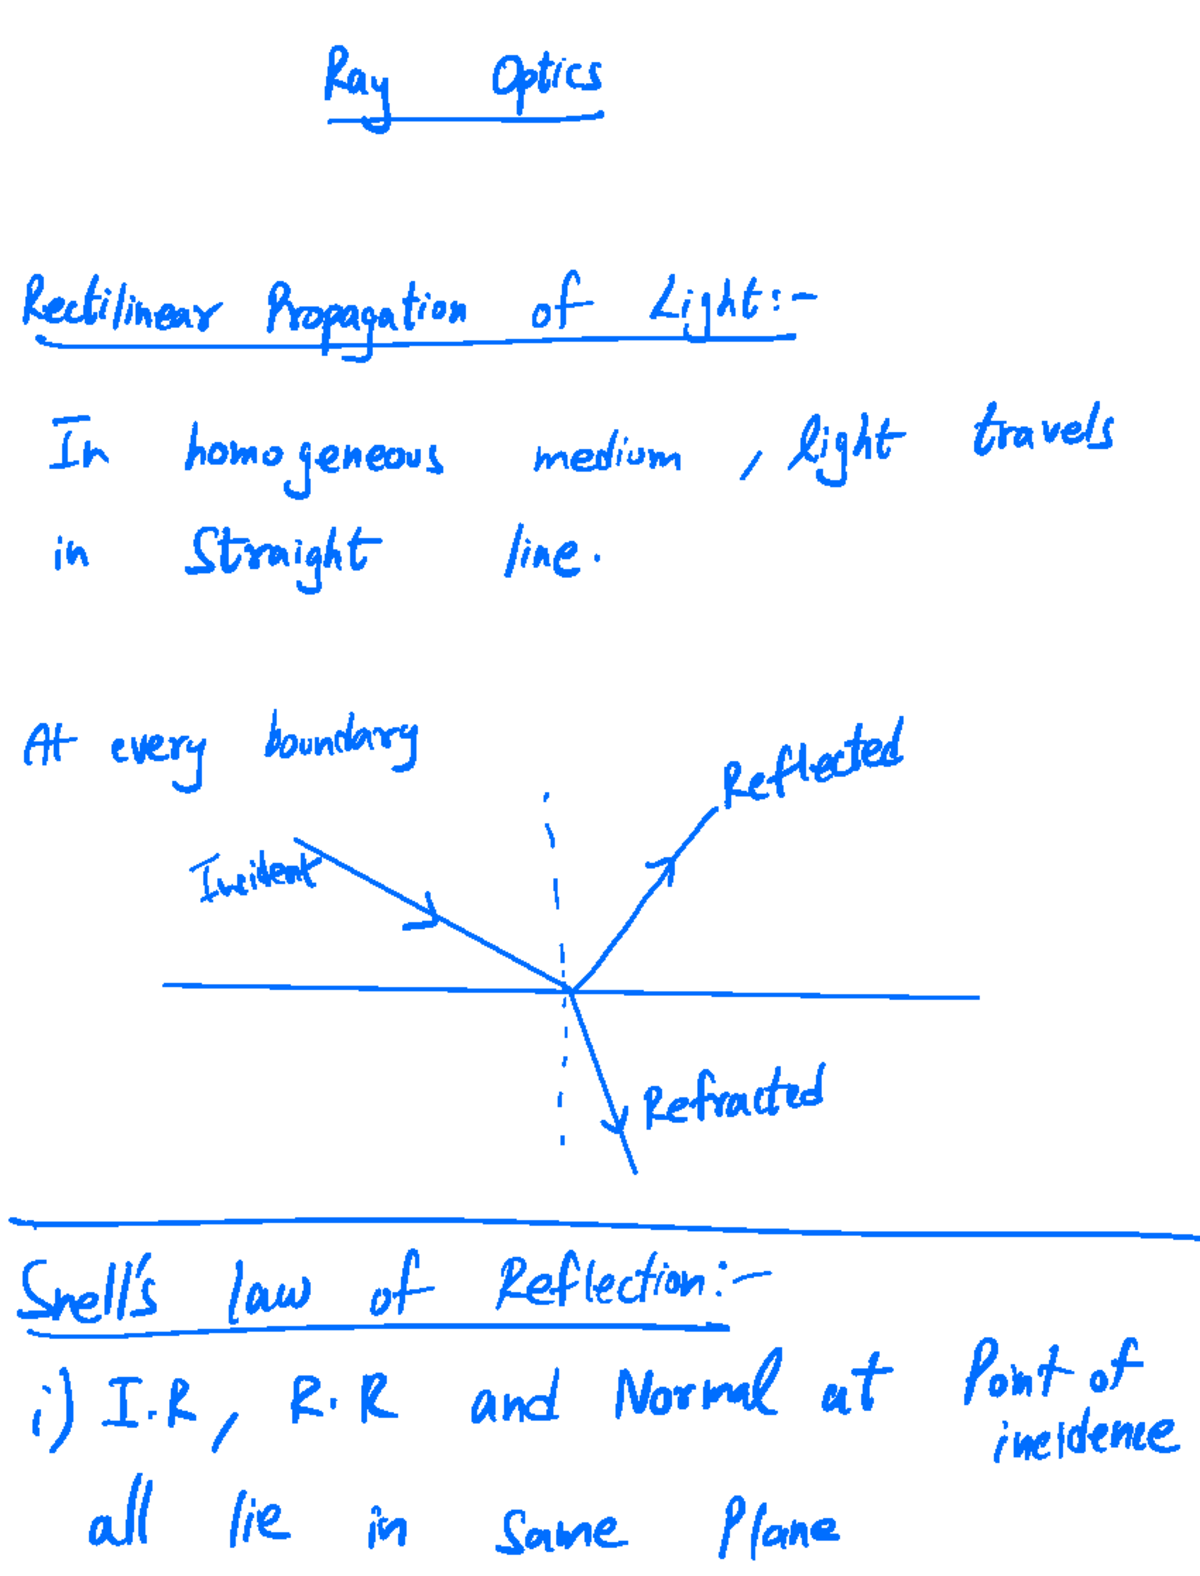 Ray Optics
Rectilinear Propagation of Light:-
In homogeneous medium, light travels
in Straight line.
At every boundary
Reflected
Incident
Refracted
Snell's law of Reflection:-
i) I.R, R.R and Normal at Point of
incidence
all lie in same Plane